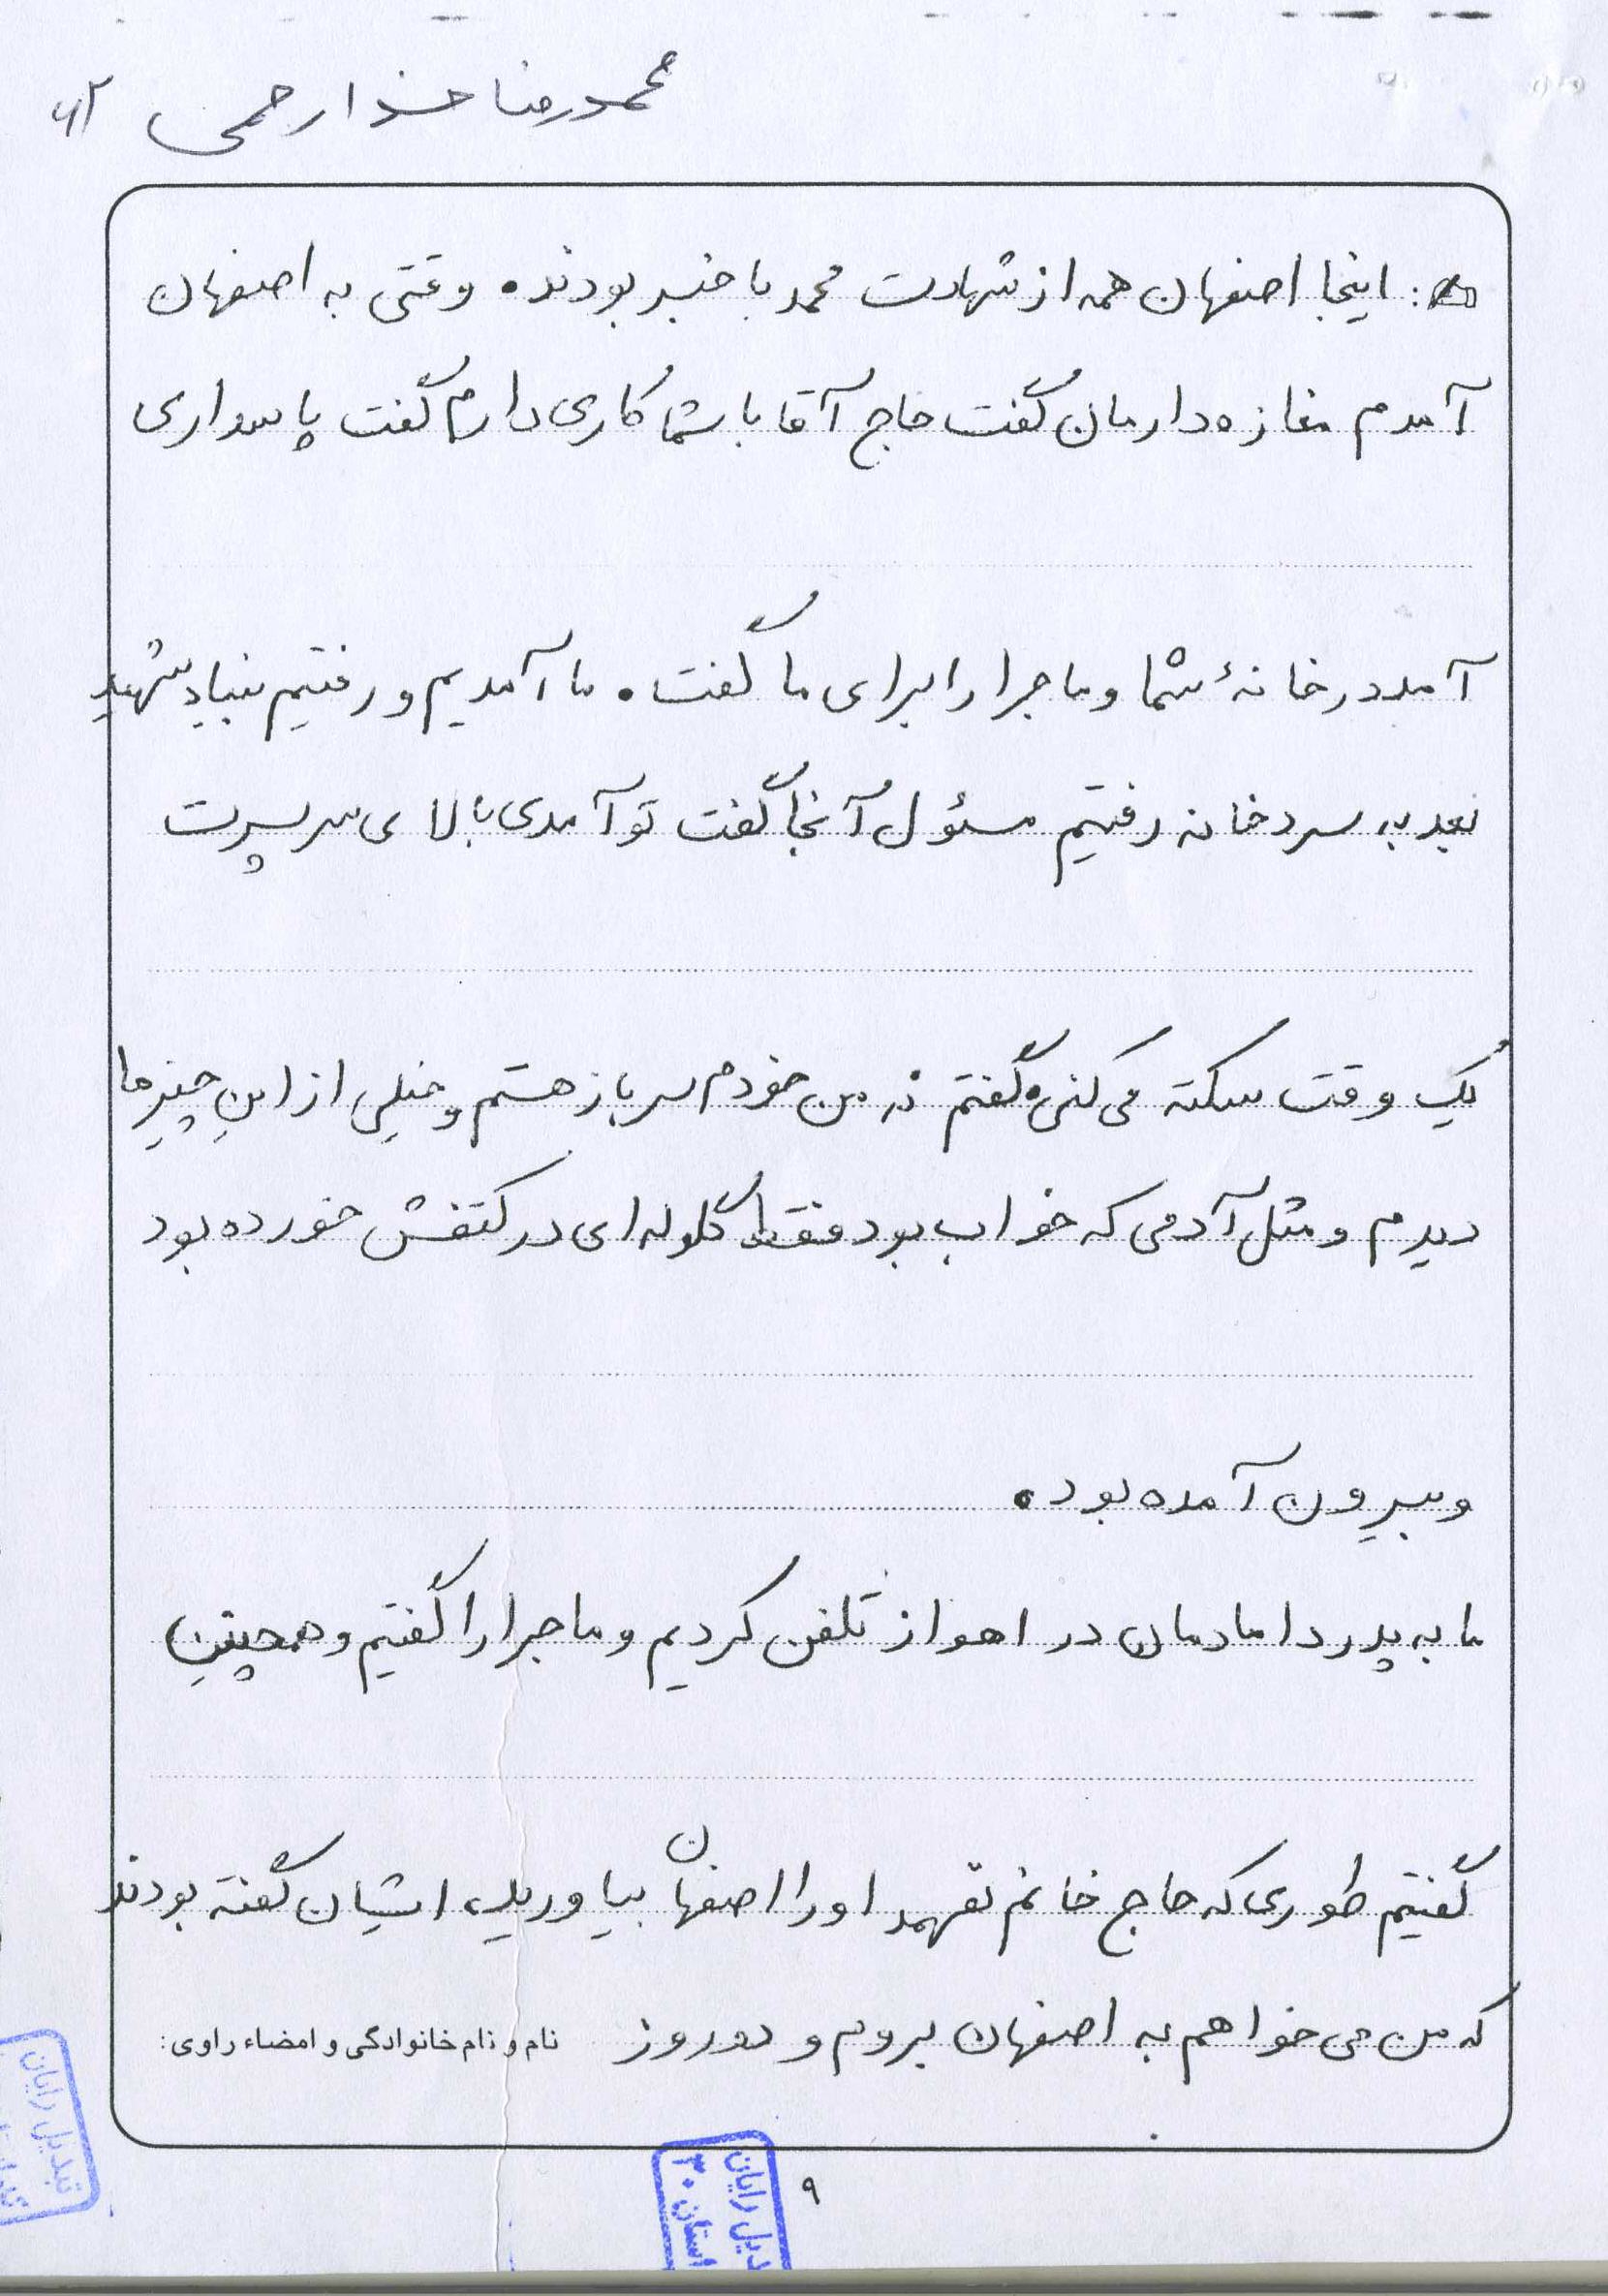 محمدرضا خدارحمی
: اینجا اصفهان همه از شهادت محمد با خبر بودند. وقتی به اصفهان
آمدم مغازه دارمان گفت حاج آقا با شما کاری دارم گفت پاسداری
آمد در خانهٔ شما و ماجرا را برای ما گفت. ما آمدیم و رفتیم بنیاد شهید
بعد به سردخانه رفتیم مسئول آنجا گفت تو آمدی بالای سر پسرت
یک وقت سکته می کنی گفتم نه من خودم سرباز هستم و خیلی از این چیزها
دیدم و مثل آدمی که خواب بود فقط گلوله ای در کتفش خورده بود
و بیرون آمده بود.
ما به پدر دامادمان در اهواز تلفن کردیم و ماجرا را گفتیم و همچنین
گفتیم طوری که حاج خانم نفهمد او را اصفهان بیاورید، ایشان گفته بودند
که من می خواهم به اصفهان بروم و دو روز
نام و نام خانوادگی و امضاء راوی:
۹
تبدیل رایان
دیل رایان
استان ۳۰